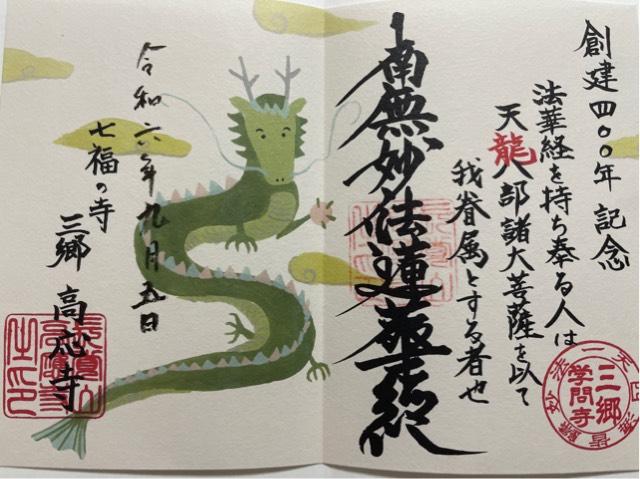 創建四〇〇年 記念
法華経を持ち奉る人は
天龍八部諸大菩薩を以て
我眷属とする者也
三郷
学問寺
南無妙法蓮華経
令和六年九月五日
七福の寺
三郷 高応寺